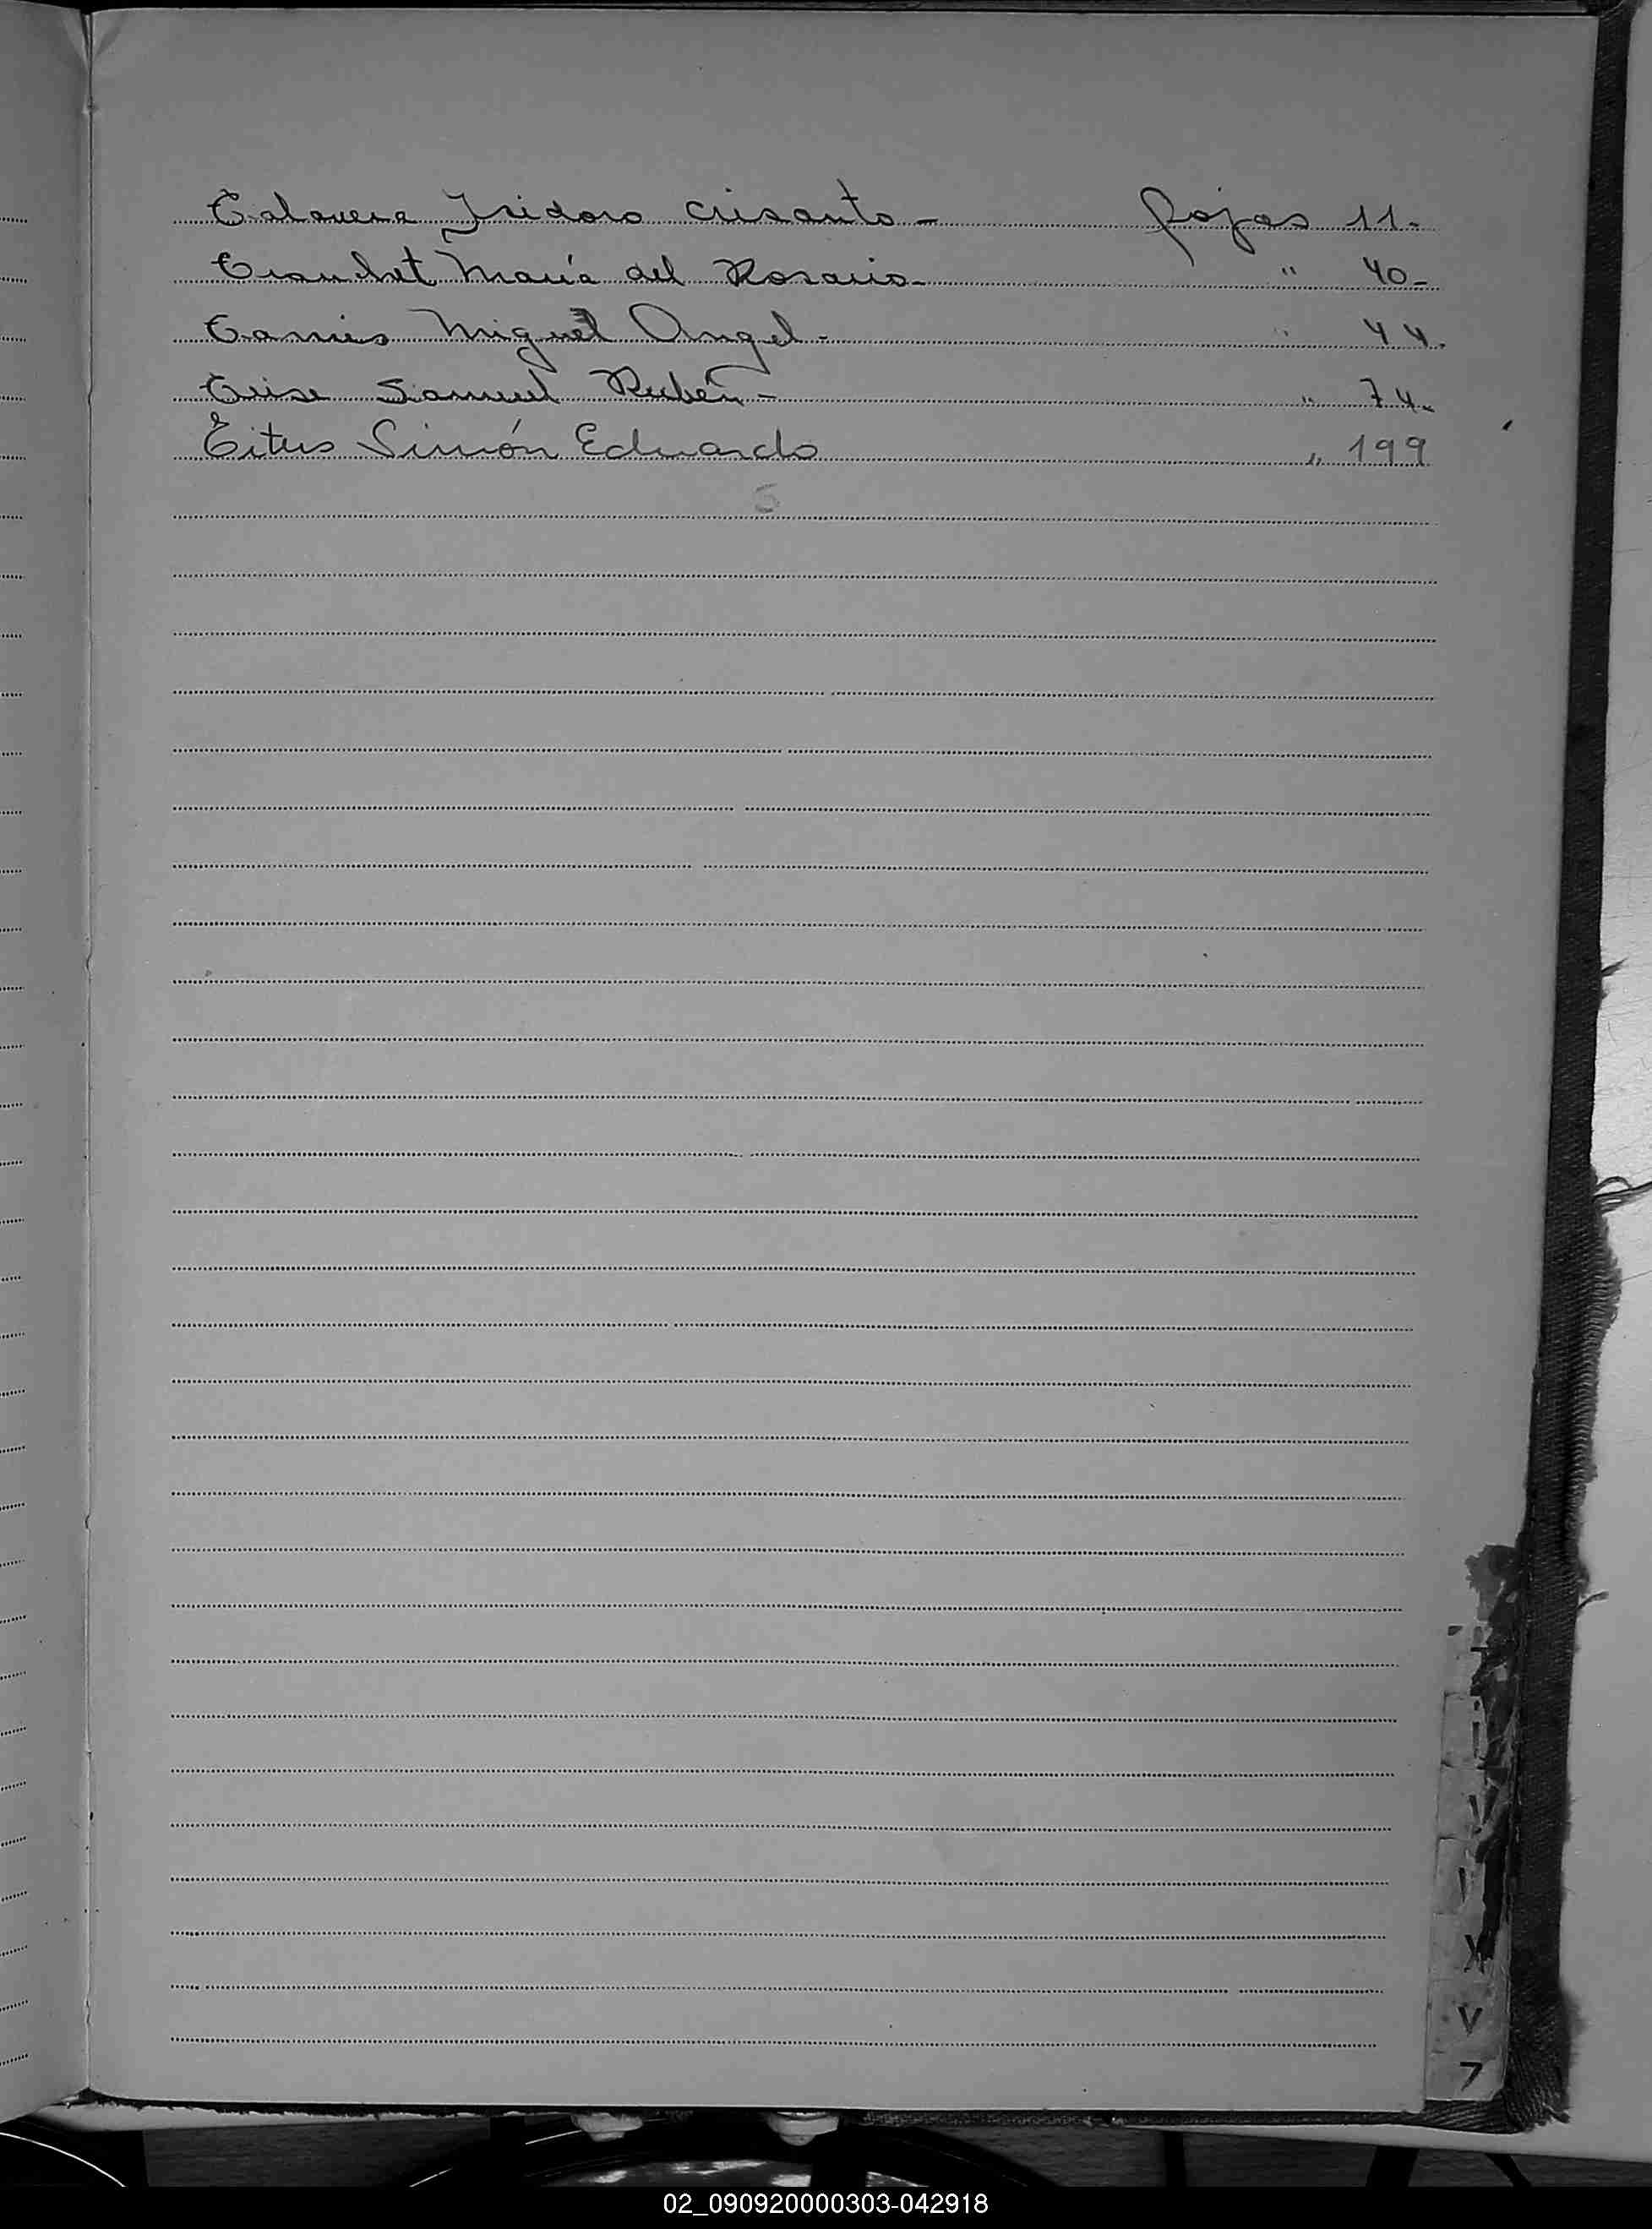 Talavera Isidoro Crisanto - fojas 11-
Tranchet María del Rosario - " 40-
Miguel Angel - " 44.
Samuel Rubén - " 74-
Titus Simón Eduardo " 199
5
V
X
V
7
02_090920000303-042918